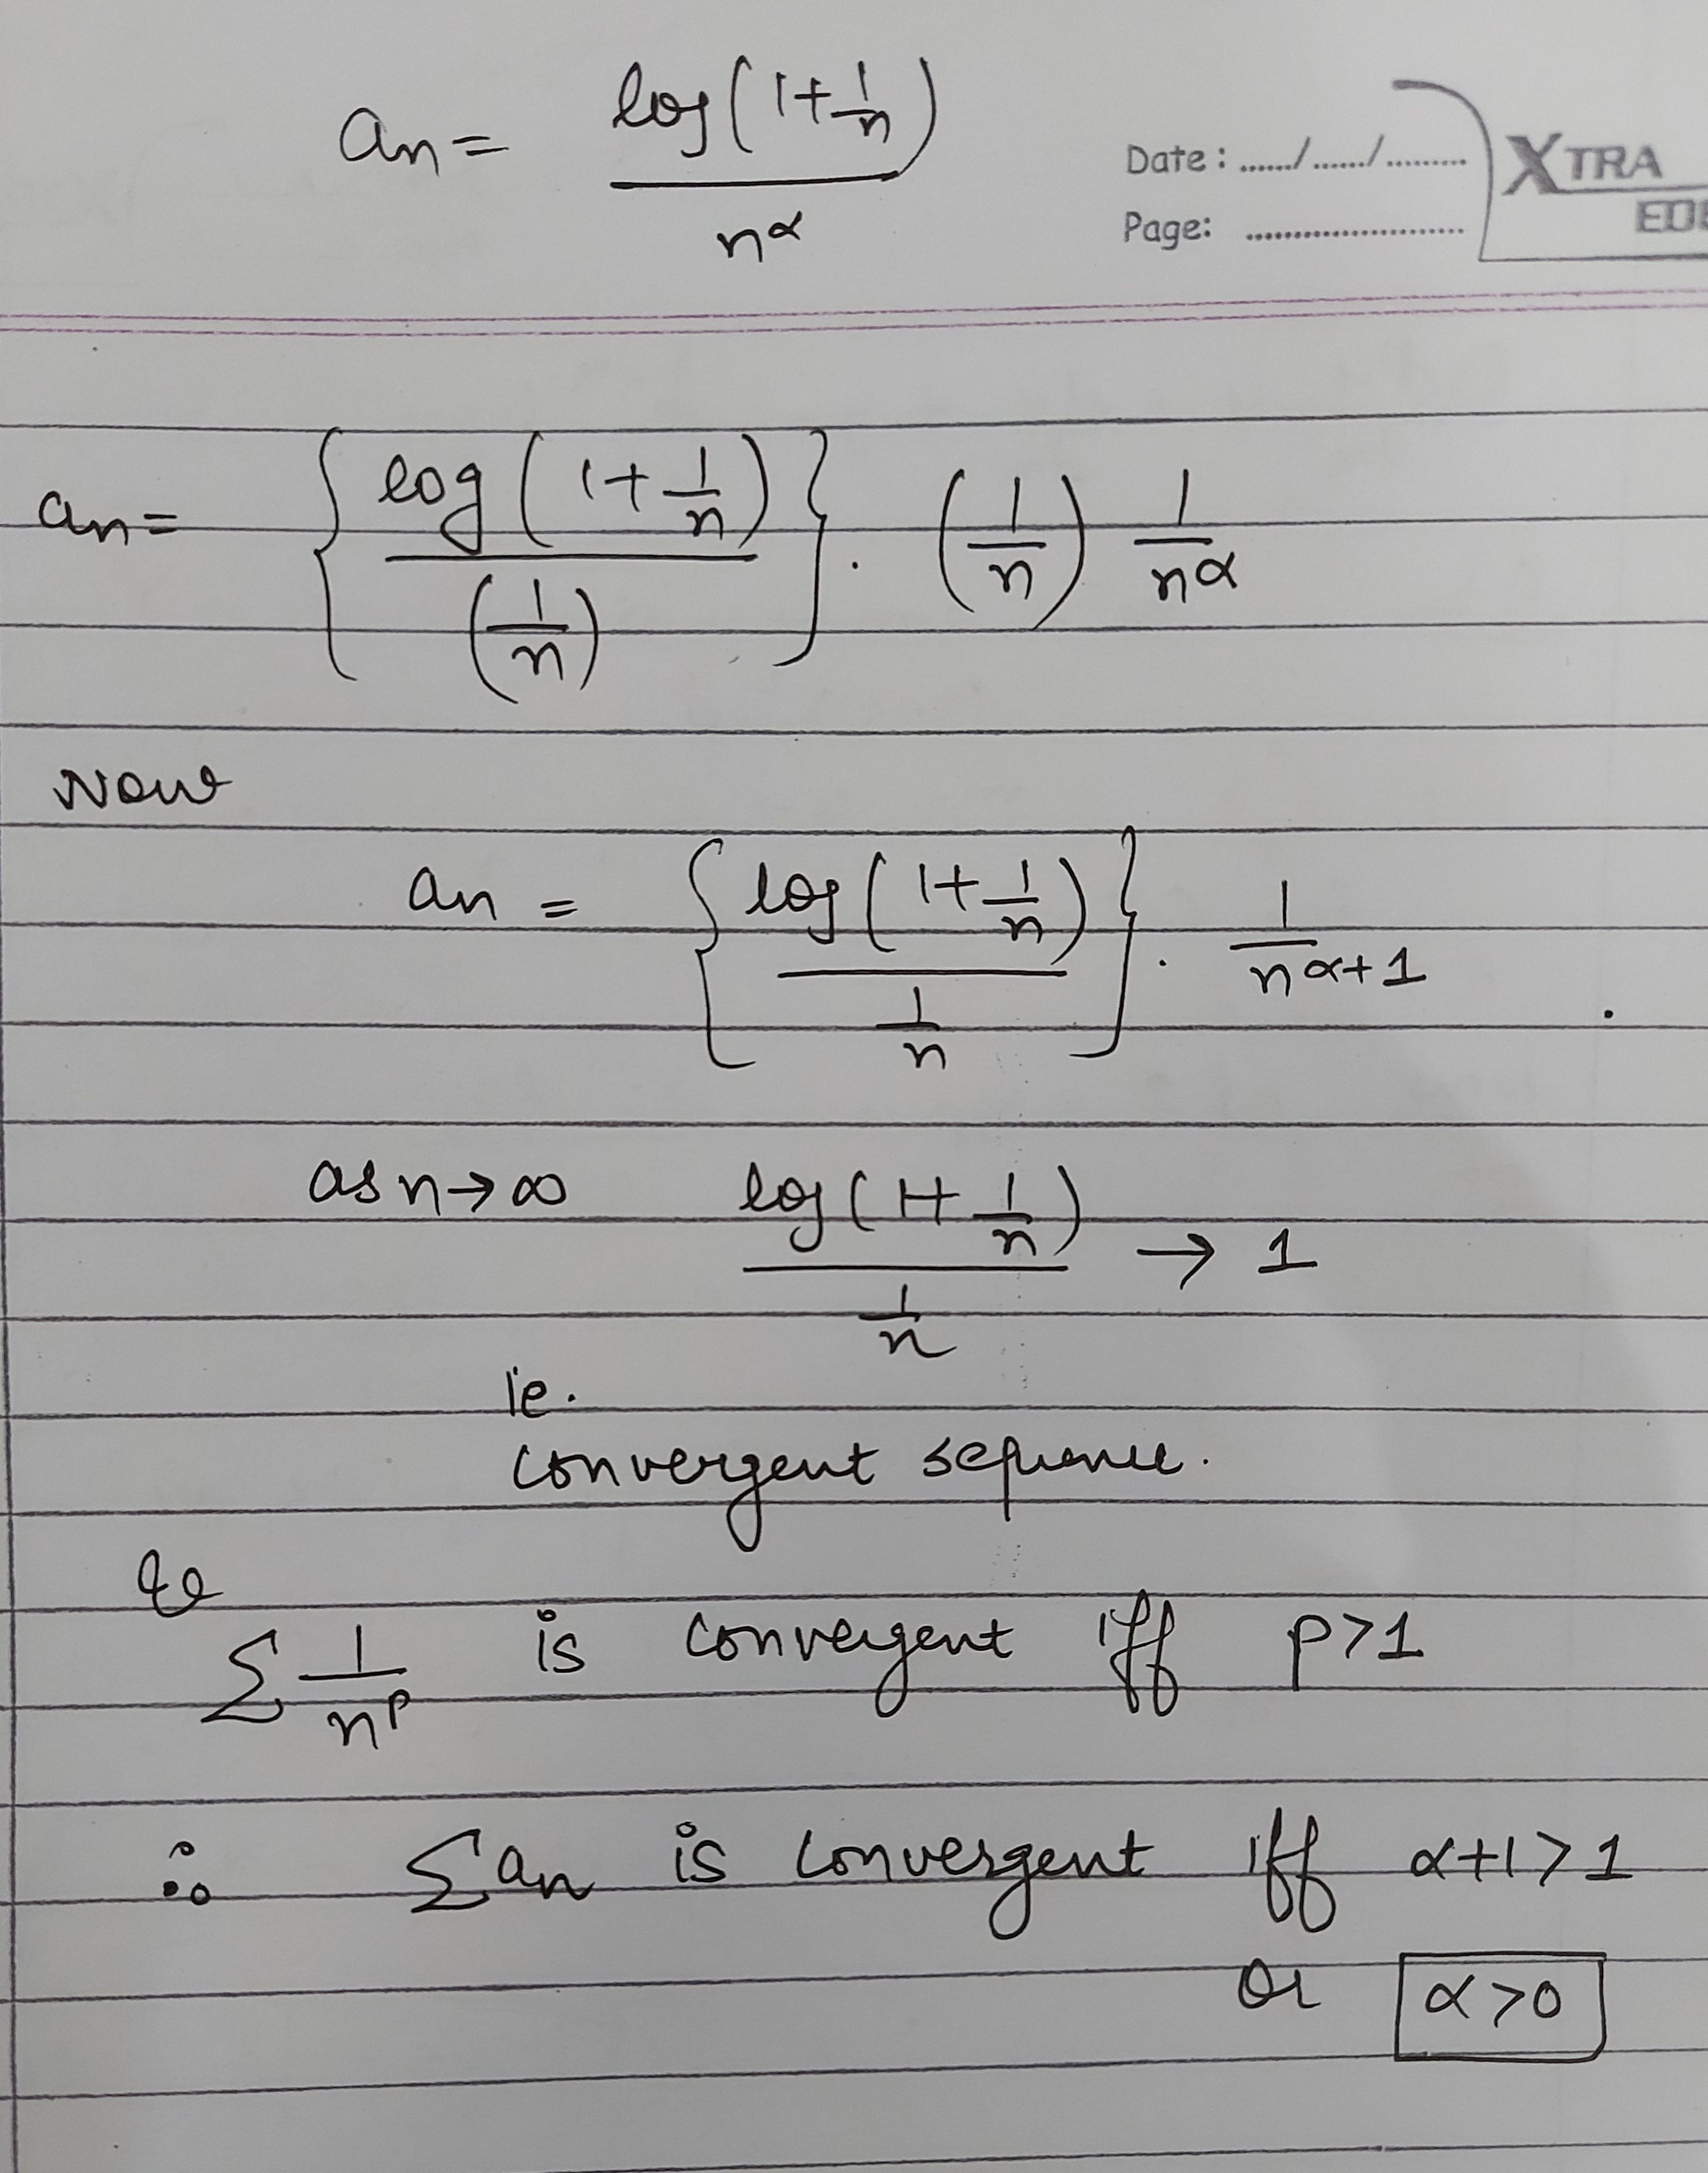 an = log(1+1/n) / n^α
Date : ....../....../.........
Page: .......................
XTRA
an = { log(1+1/n) / (1/n) } . (1/n) 1/n^α
Now
an = { log(1+1/n) / 1/n } . 1/n^α+1 .
as n→∞ log(1+1/n) / 1/n → 1
ie.
convergent sequence.
&
Σ 1/n^p is convergent iff p>1
∴ Σan is convergent iff α+1>1
or α>0